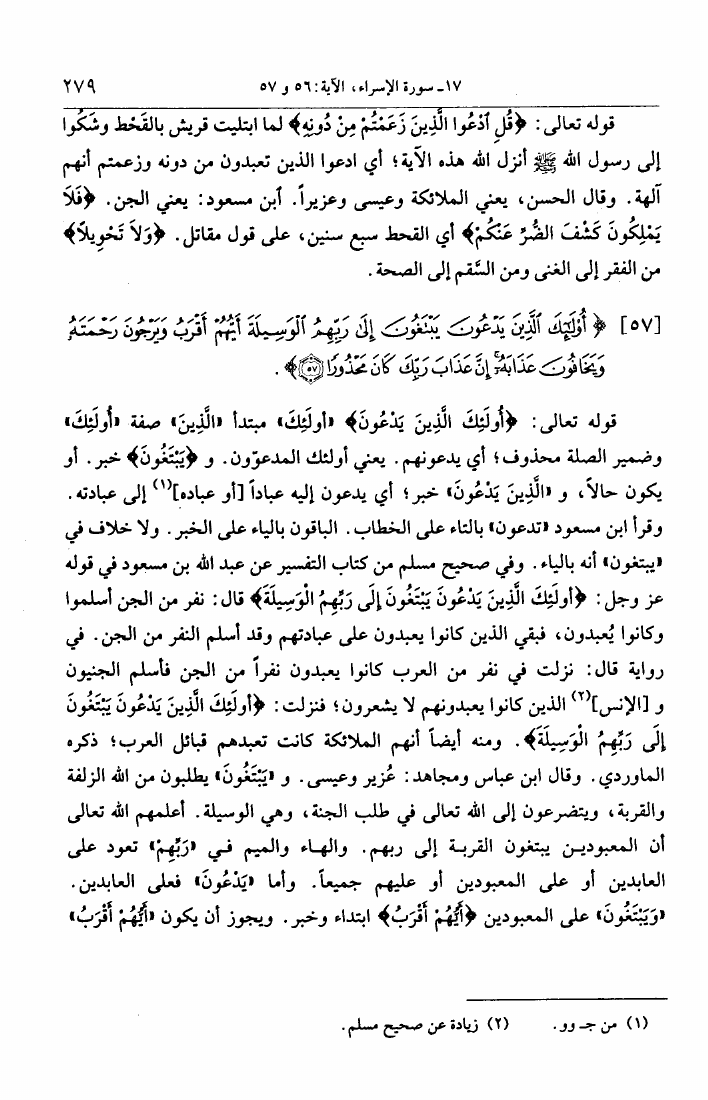 ١٧ـ سورة الإسراء، الآية: ٥٦ و ٥٧ ٢٧٩
قوله تعالى: ﴿قُلِ ٱدْعُوا الَّذِينَ زَعَمْتُمْ مِنْ دُونِهِ﴾ لما ابتليت قريش بالقَحْط وشَكَوا
إلى رسول الله ﷺ أنزل الله هذه الآية؛ أي ادعوا الذين تعبدون من دونه وزعمتم أنهم
آلهة. وقال الحسن، يعني الملائكة وعيسى وعزيراً. ٱبن مسعود: يعني الجن. ﴿فَلاَ
يَمْلِكُونَ كَشْفَ الضُّرِّ عَنْكُمْ﴾ أي القحط سبع سنين، على قول مقاتل. ﴿وَلاَ تَحْوِيلاً﴾
من الفقر إلى الغنى ومن السَّقم إلى الصحة.
[٥٧] ﴿أُوْلَٰٓئِكَ ٱلَّذِينَ يَدْعُونَ يَبْتَغُونَ إِلَىٰ رَبِّهِمُ ٱلْوَسِيلَةَ أَيُّهُمْ أَقْرَبُ وَيَرْجُونَ رَحْمَتَهُۥ
وَيَخَافُونَ عَذَابَهُۥٓ إِنَّ عَذَابَ رَبِّكَ كَانَ مَحْذُورًا ۝٥٧﴾.
قوله تعالى: ﴿أُولَئِكَ الَّذِينَ يَدْعُونَ﴾ «أولَئِكَ» مبتدأ «الَّذِينَ» صفة «أُولَئِكَ»
وضمير الصلة محذوف؛ أي يدعونهم. يعني أولئك المدعوّون. و ﴿يَبْتَغُونَ﴾ خبر. أو
يكون حالاً، و «الَّذِينَ يَدْعُونَ» خبر؛ أي يدعون إليه عباداً [أو عباده](١) إلى عبادته.
وقرأ ابن مسعود «تدعون» بالتاء على الخطاب. الباقون بالياء على الخبر. ولا خلاف في
«يبتغون» أنه بالياء. وفي صحيح مسلم من كتاب التفسير عن عبد الله بن مسعود في قوله
عز وجل: ﴿أُولَئِكَ الَّذِينَ يَدْعُونَ يَبْتَغُونَ إِلَى رَبِّهِمُ الْوَسِيلَةَ﴾ قال: نفر من الجن أسلموا
وكانوا يُعبدون، فبقي الذين كانوا يعبدون على عبادتهم وقد أسلم النفر من الجن. في
رواية قال: نزلت في نفر من العرب كانوا يعبدون نفراً من الجن فأسلم الجنيون
و [الإنس](٢) الذين كانوا يعبدونهم لا يشعرون؛ فنزلت: ﴿أُولَئِكَ الَّذِينَ يَدْعُونَ يَبْتَغُونَ
إِلَى رَبِّهِمُ الْوَسِيلَةَ﴾. ومنه أيضاً أنهم الملائكة كانت تعبدهم قبائل العرب؛ ذكره
الماوردي. وقال ابن عباس ومجاهد: عُزير وعيسى. و «يَبْتَغُونَ» يطلبون من الله الزلفة
والقربة، ويتضرعون إلى الله تعالى في طلب الجنة، وهي الوسيلة. أعلمهم الله تعالى
أن المعبودين يبتغون القربة إلى ربهم. والهاء والميم في «رَبِّهِمْ» تعود على
العابدين أو على المعبودين أو عليهم جميعاً. وأما «يَدْعُونَ» فعلى العابدين.
«وَيَبْتَغُونَ» على المعبودين ﴿أَيُّهُمْ أَقْرَبُ﴾ ابتداء وخبر. ويجوز أن يكون «أَيُّهُمْ أَقْرَبُ»
(١) من جـ وو. (٢) زيادة عن صحيح مسلم.